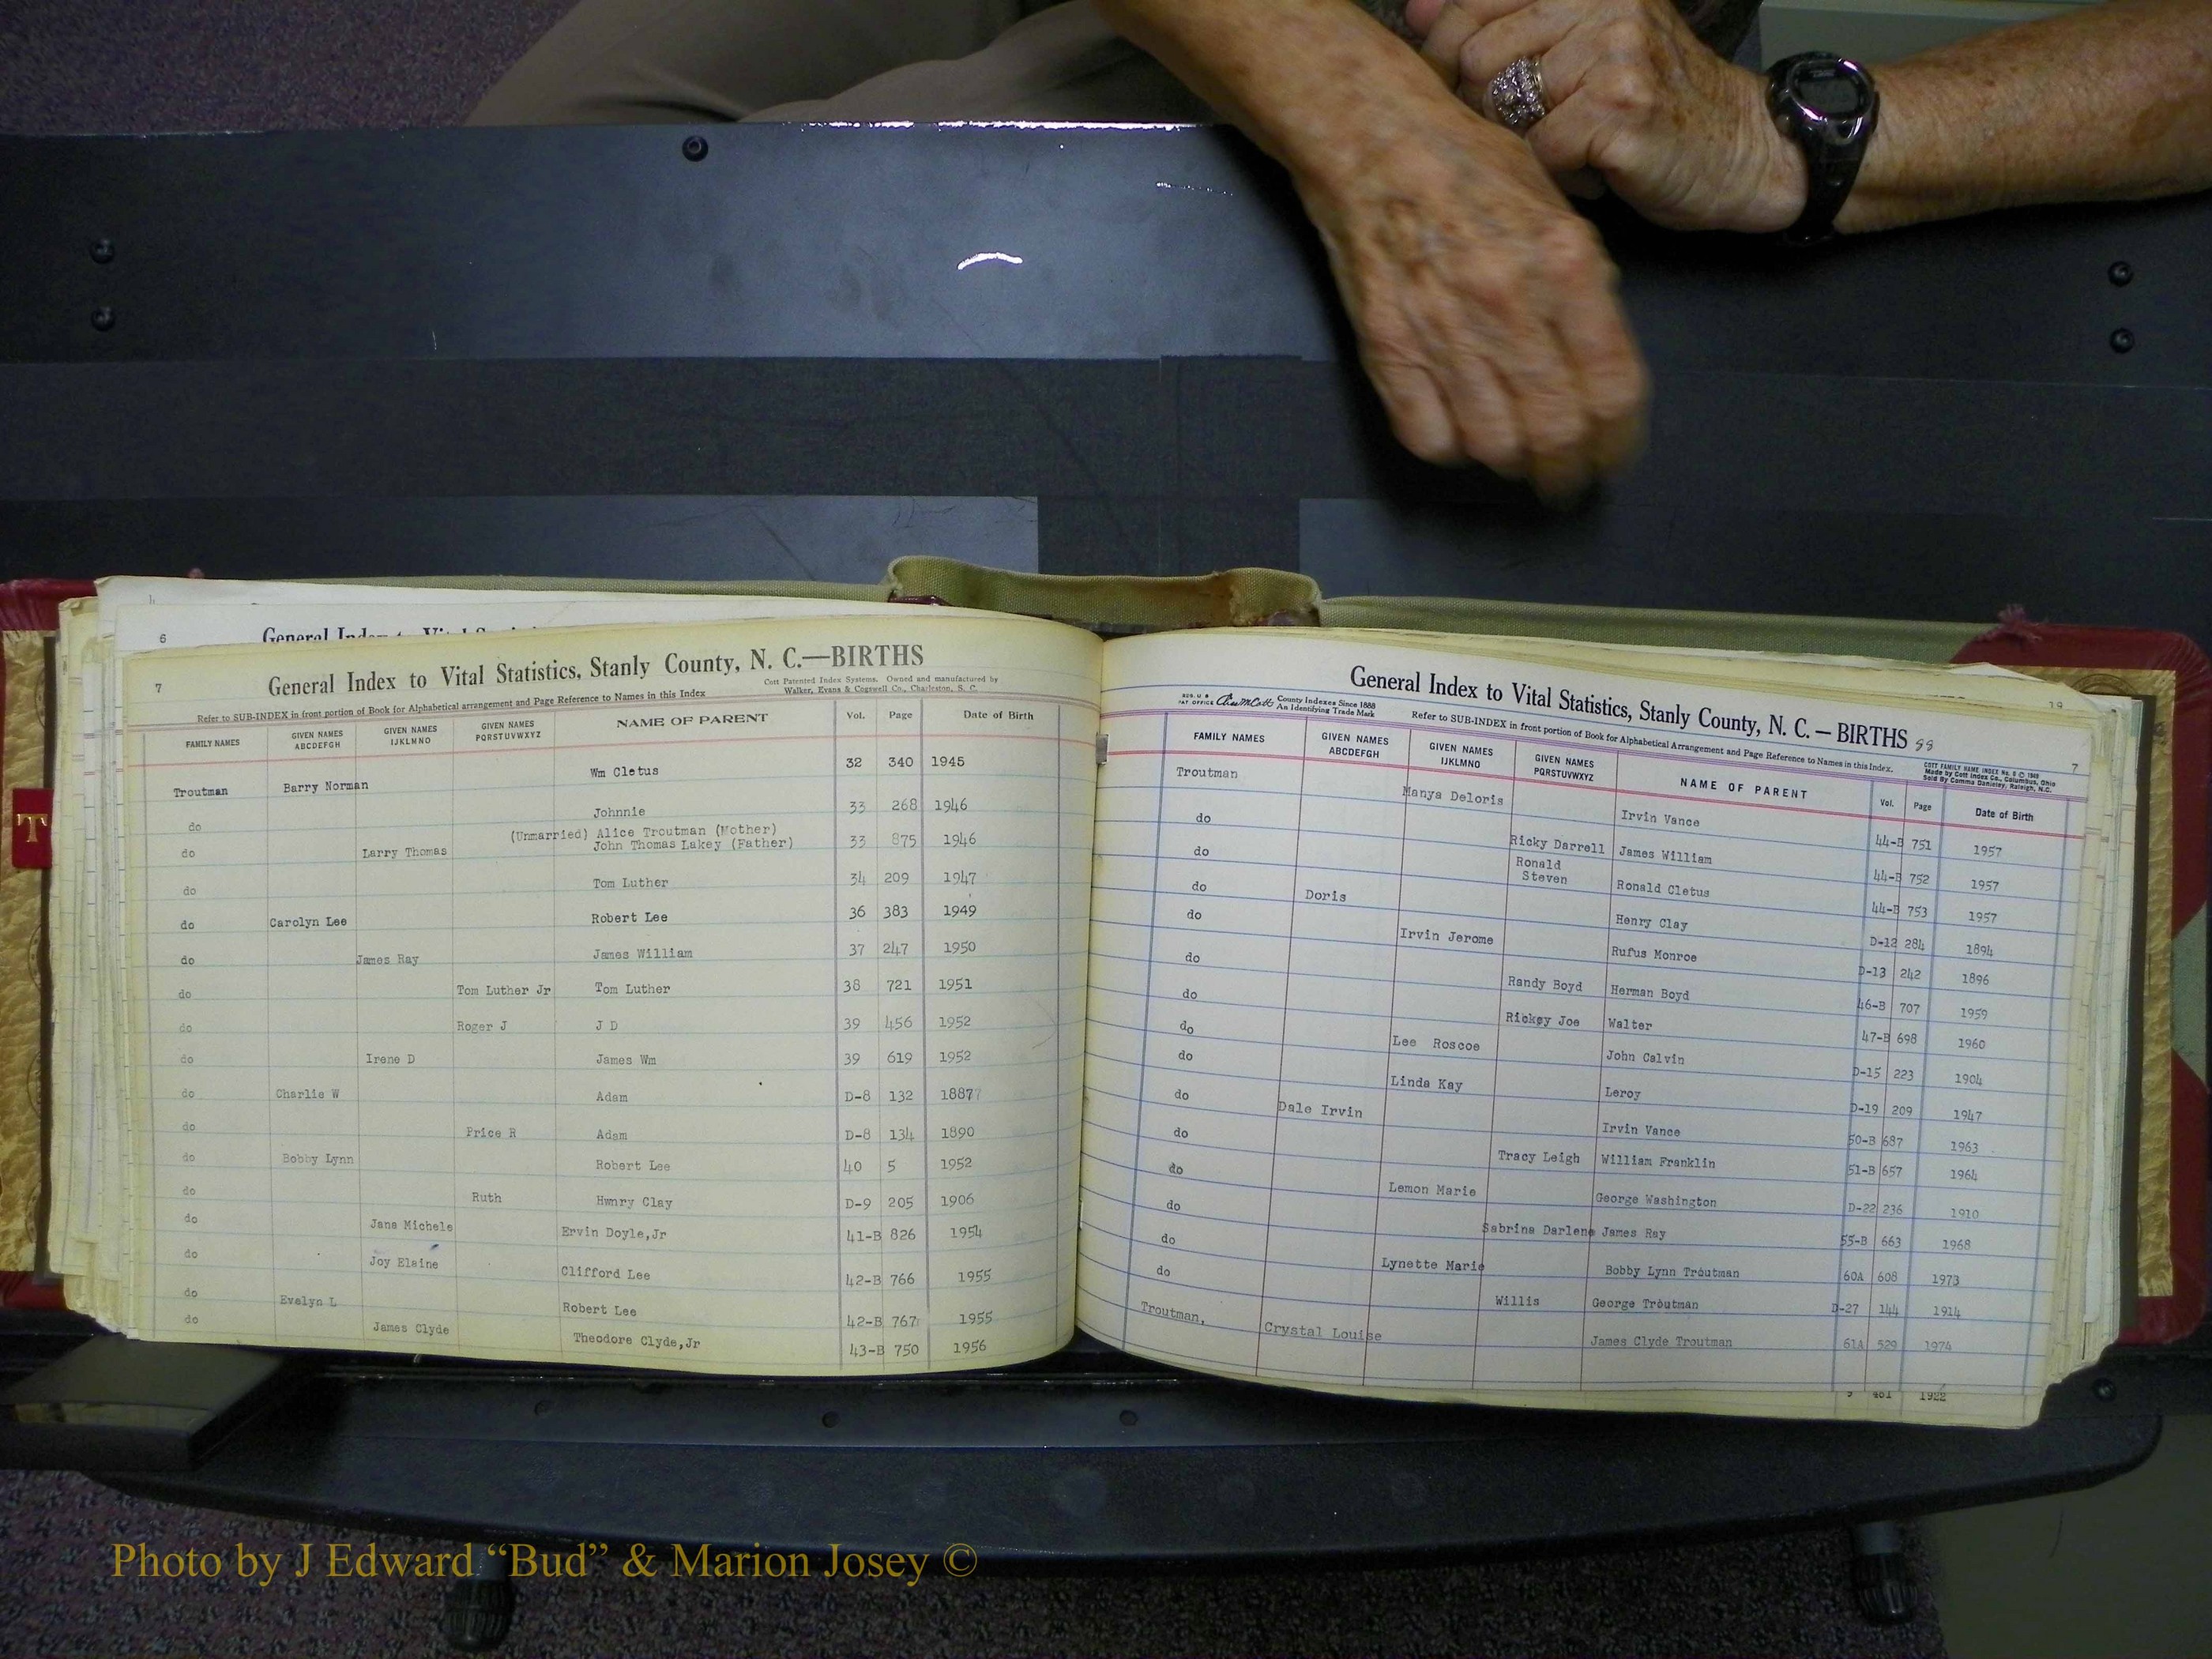 6 General Index to Vital Statistics
7 General Index to Vital Statistics, Stanly County, N. C.—BIRTHS
Cott Patented Index Systems. Owned and manufactured by
Walker, Evans & Cogswell Co., Charleston, S. C.
Refer to SUB-INDEX in front portion of Book for Alphabetical arrangement and Page Reference to Names in this Index
FAMILY NAMES GIVEN NAMES ABCDEFGH GIVEN NAMES IJKLMNO GIVEN NAMES PQRSTUVWXYZ NAME OF PARENT Vol. Page Date of Birth
Troutman Barry Norman Wm Cletus 32 340 1945
do Johnnie 33 268 1946
(Unmarried) Alice Troutman (Mother)
do Larry Thomas John Thomas Lakey (Father) 33 875 1946
do Tom Luther 34 209 1947
do Carolyn Lee Robert Lee 36 383 1949
do James Ray James William 37 247 1950
do Tom Luther Jr Tom Luther 38 721 1951
do Roger J J D 39 456 1952
do Irene D James Wm 39 619 1952
do Charlie W Adam D-8 132 1887
do Price R Adam D-8 134 1890
do Bobby Lynn Robert Lee 40 5 1952
do Ruth Hwnry Clay D-9 205 1906
do Jane Michele Ervin Doyle,Jr 41-B 826 1954
do Joy Elaine Clifford Lee 42-B 766 1955
do Evelyn L Robert Lee 42-B 767 1955
do James Clyde Theodore Clyde,Jr 43-B 750 1956
T
19
General Index to Vital Statistics, Stanly County, N. C. — BIRTHS 7
County Indexes Since 1888
An Identifying Trade Mark
Refer to SUB-INDEX in front portion of Book for Alphabetical Arrangement and Page Reference to Names in this Index.
Made by Cott Index Co., Columbus, Ohio
FAMILY NAMES GIVEN NAMES ABCDEFGH GIVEN NAMES IJKLMNO GIVEN NAMES PQRSTUVWXYZ NAME OF PARENT Vol. Page Date of Birth
Troutman Manya Deloris Irvin Vance 44-B 751 1957
do Ricky Darrell James William 44-B 752 1957
do Ronald Steven Ronald Cletus 44-B 753 1957
do Doris Henry Clay D-12 284 1894
do Irvin Jerome Rufus Monroe D-13 242 1896
do Randy Boyd Herman Boyd 46-B 707 1959
do Rickey Joe Walter 47-B 698 1960
do Lee Roscoe John Calvin D-15 223 1904
do Linda Kay Leroy D-19 209 1947
do Dale Irvin Irvin Vance 50-B 687 1963
do Tracy Leigh William Franklin 51-B 657 1964
do Lemon Marie George Washington D-22 236 1910
do Sabrina Darlene James Ray 55-B 663 1968
do Lynette Marie Bobby Lynn Troutman 60A 608 1973
do Willis George Troutman D-27 144 1914
Troutman, Crystal Louise James Clyde Troutman 61A 529 1974
461 1922
Photo by J Edward “Bud” & Marion Josey ©